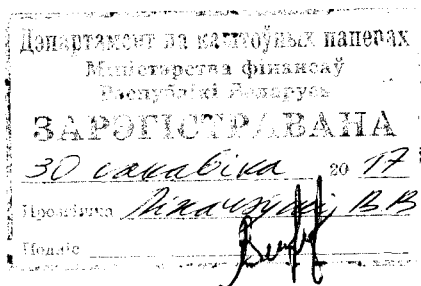 Дэпартамент па каштоўных паперах
Міністэрства фінансаў
Рэспублікі Беларусь
ЗАРЭГІСТРАВАНА
30 сакавіка 20 17
Прозвішча В В
Подпіс